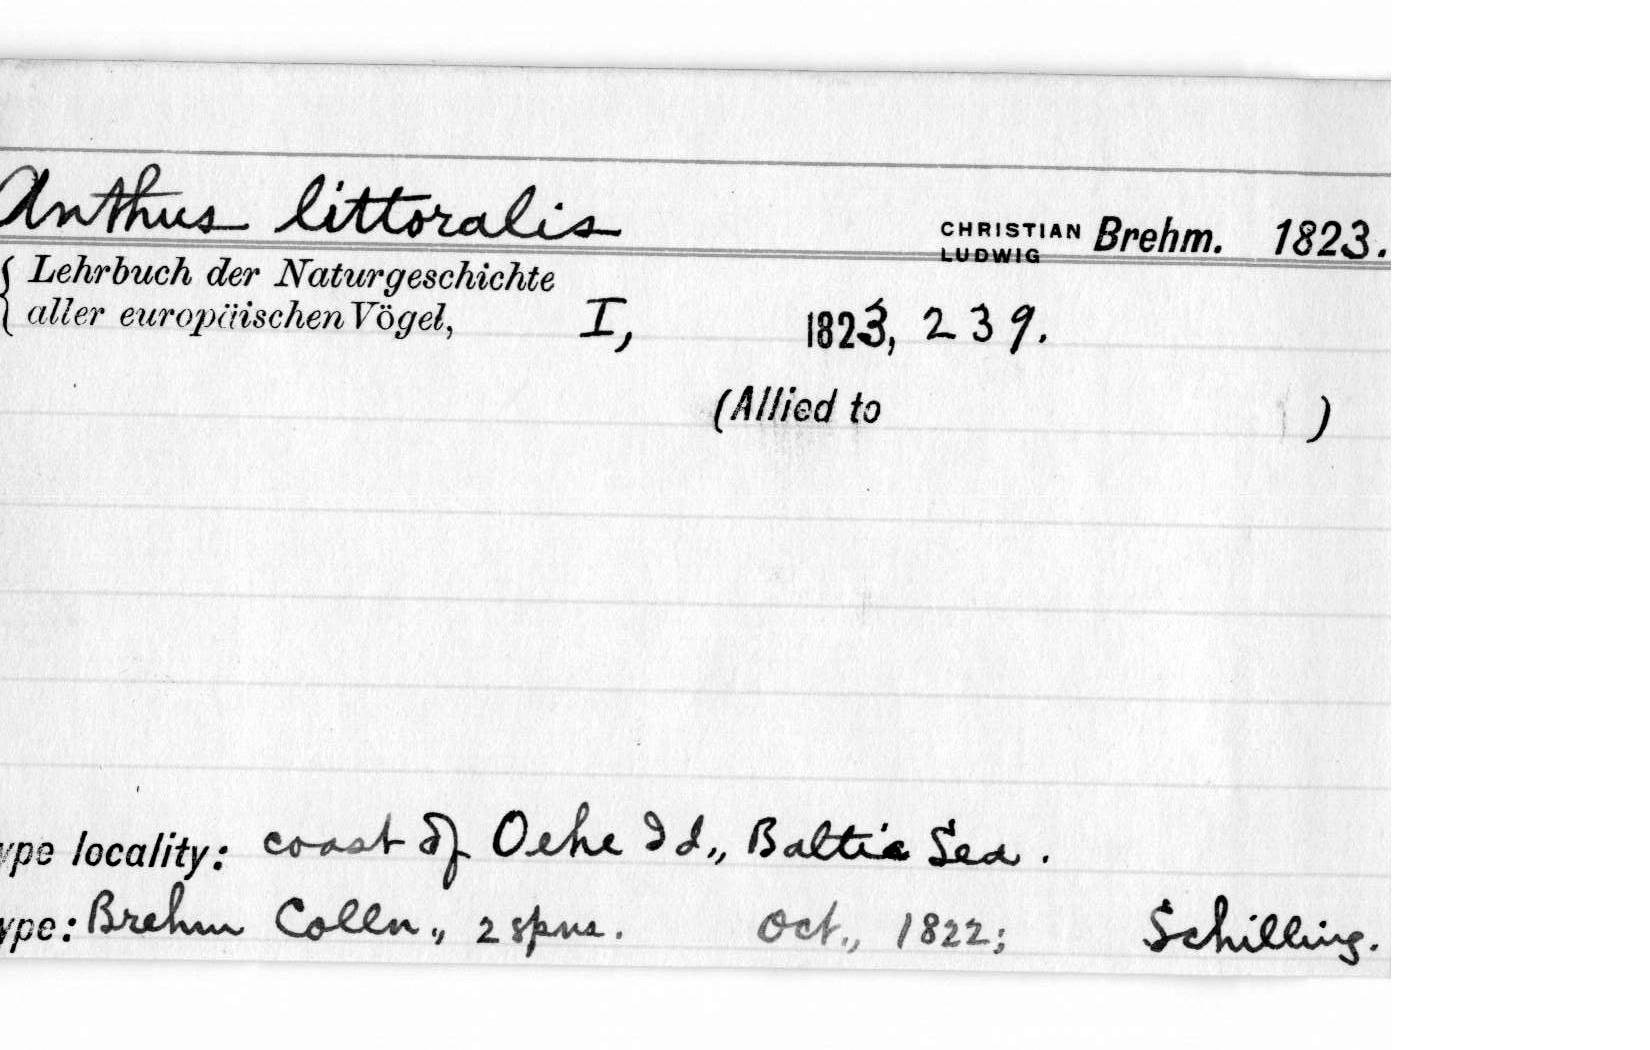 Anthus littoralis CHRISTIAN LUDWIG Brehm. 1823.
Lehrbuch der Naturgeschichte
aller europäischen Vögel, I, 1823, 239.
(Allied to )
ype locality: coast of Oehe Id., Baltic Sea.
ype: Brehm Colln., 2 spns. Oct., 1822; Schilling.